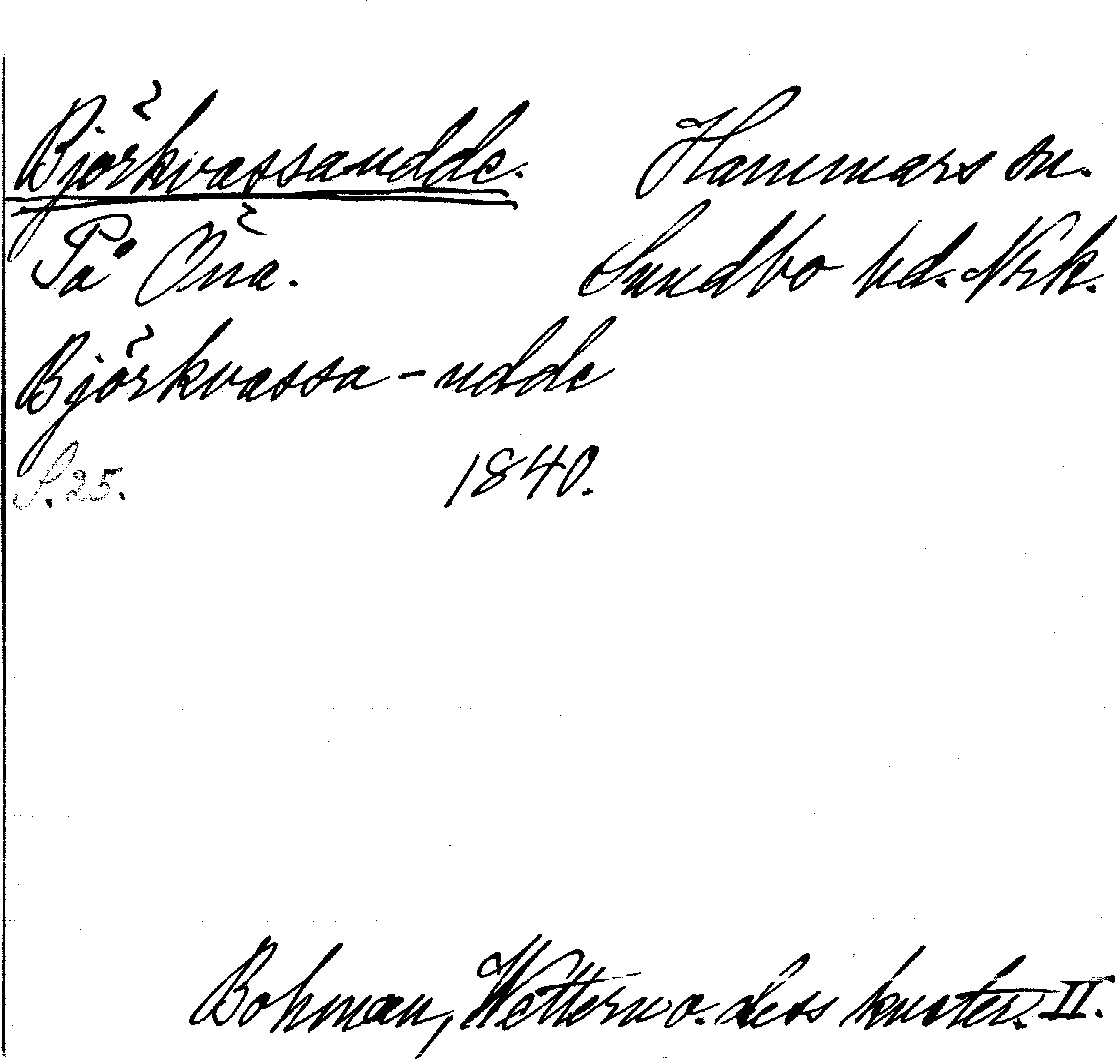 Björkvassaudde. Hammars sn.
På Öna. Sundbo hd. Nrk.
Björkvassa-udde
S. 25. 1840.
Bohman, Wettern o. dess kuster. II.